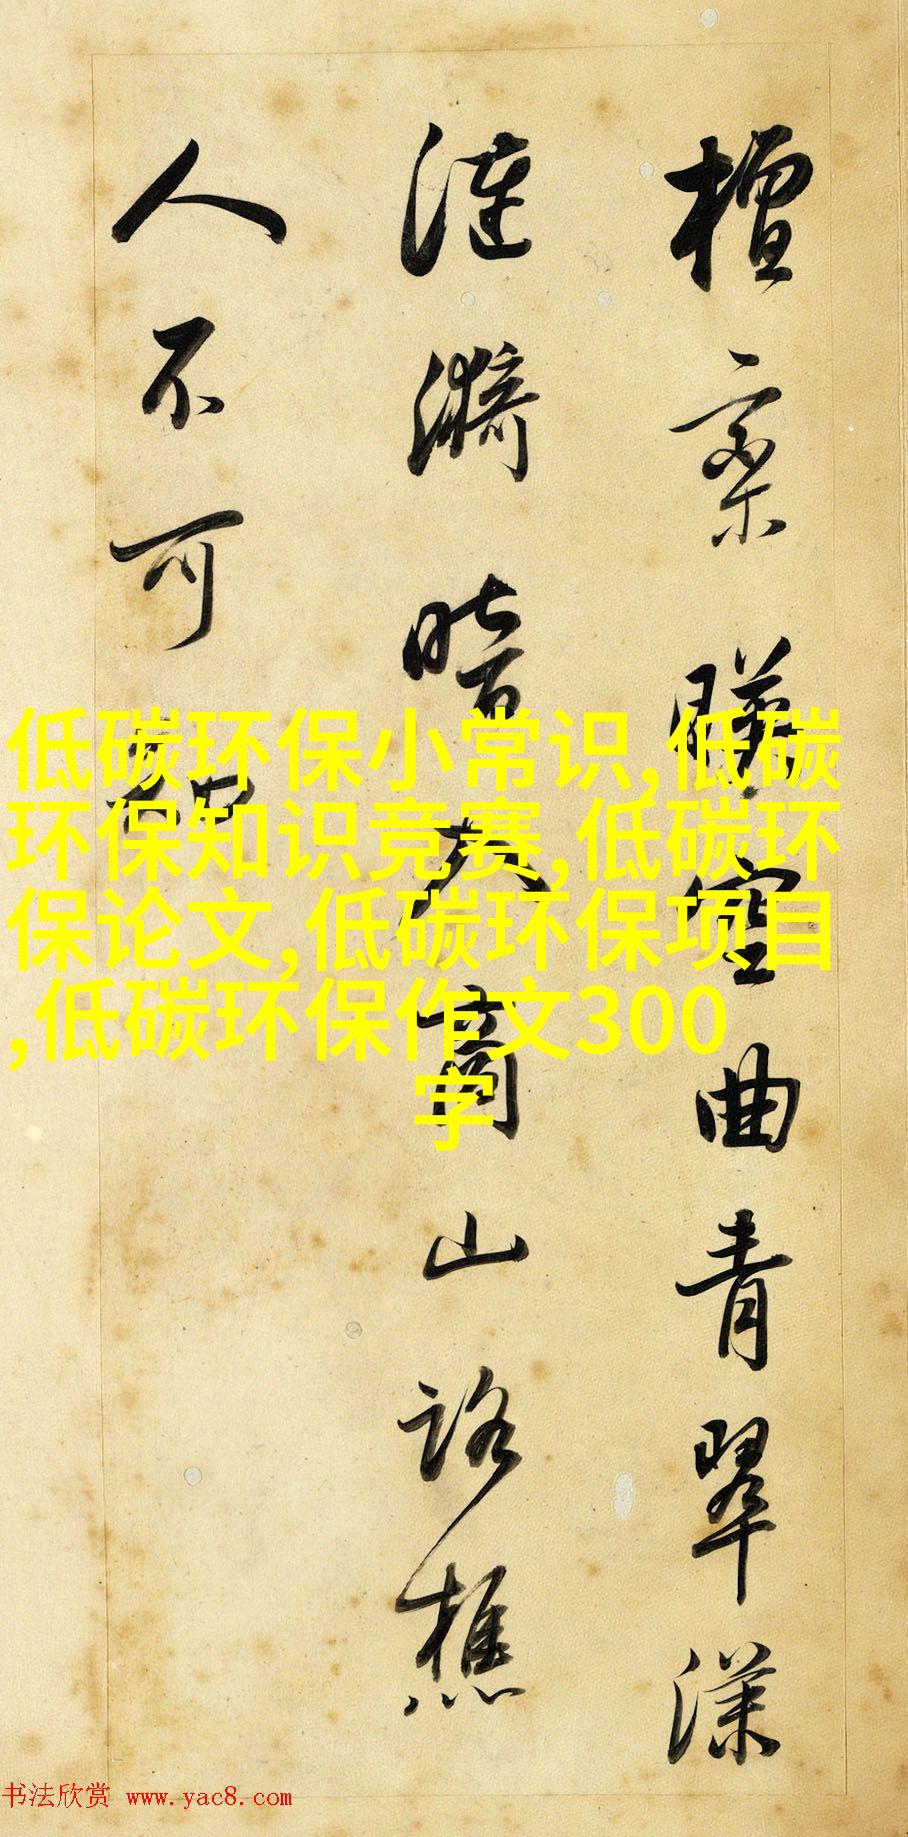 檀栾暎空曲青翠漾
漣漪暗入商山路樵
人不可知
低碳环保小常识,低碳
环保知识竞赛,低碳环
保论文,低碳环保项目
,低碳环保作文300
字
书法欣赏 www.yac8.com